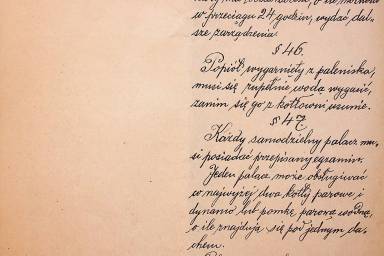 w przeciągu 24 godzin, wydać dal-
sze zarządzenia.
§ 46.
Popiół, wygarnięty z paleniska,
musi się zupełnie wodą wygasić,
zanim się go z kotłowni usunie.
§ 47.
Każdy samodzielny palacz mu-
si posiadać przepisany egzamin.
Jeden palacz może obsługiwać
w najwyżej dwa kotły parowe i
dynamo lub pompkę parową wodną,
o ile znajdują się pod jednym da-
chem.